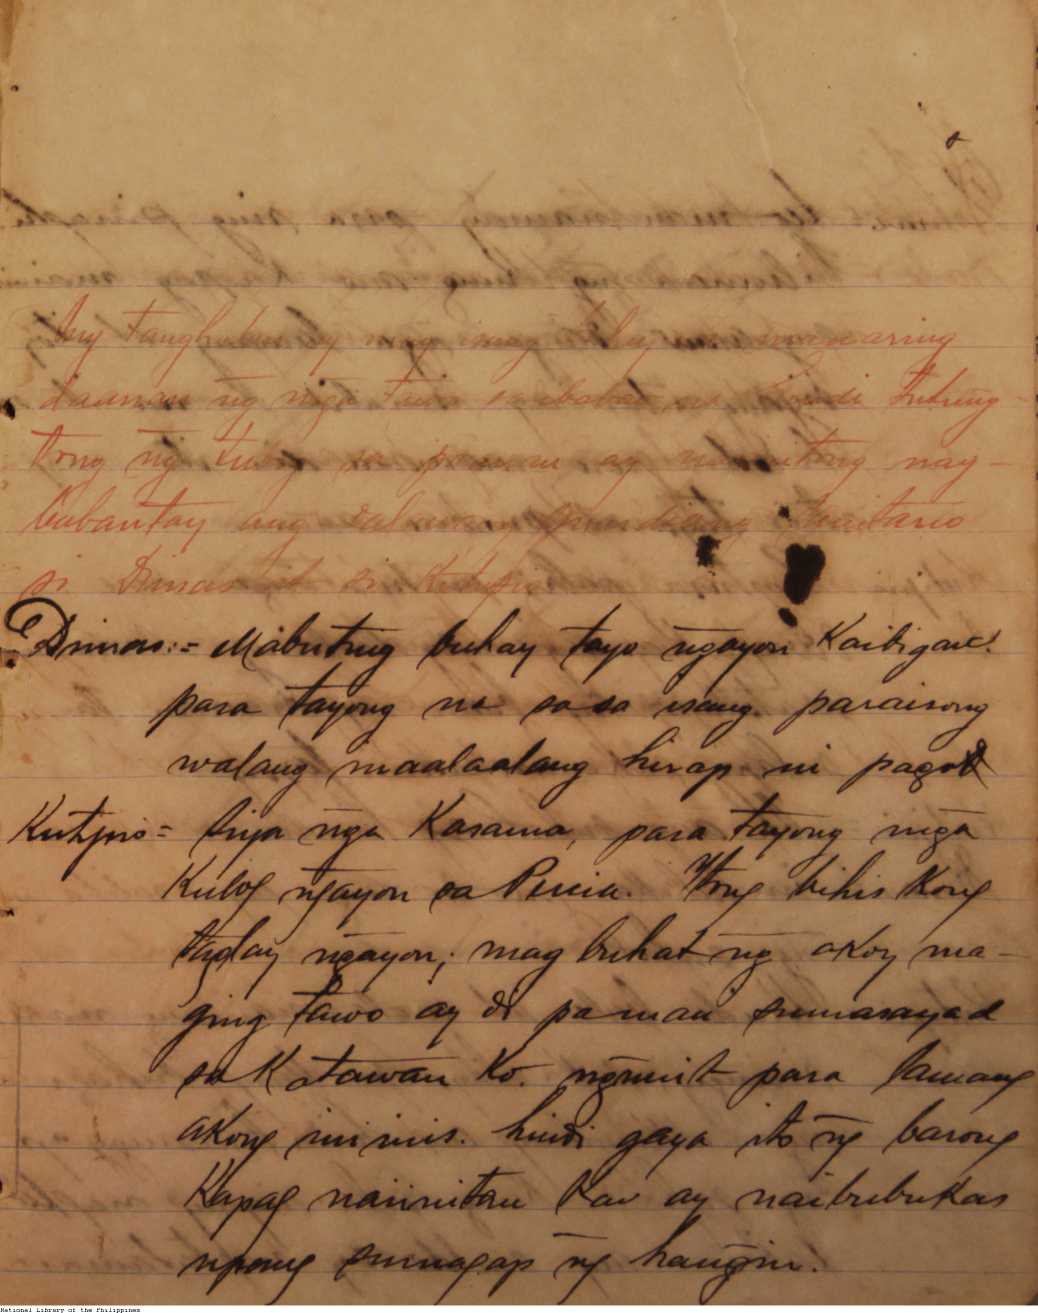 Ang tanghalan ay
daanan ng mga tawo sa ibabaw na hindi tutung-
tong ng tubig sa ay nag-
babantay ang dalawang guardiang sanitario
si Dimas at si Kutipio
Dimas:= Mabuting buhay tayo ngayon Kaibigan!
para tayong na sa sa isang paraisong
walang maalaalang hirap ni pagod
Kutipio= Siya nga Kasama, para tayong mga
ngayon sa Itong bihis Kong
taglay ngayon; mag buhat ng akoy ma-
ging tawo ay di pa man sumasayad
sa Katawan Ko. ngunit para lamang
akong hindi gaya ito ng barong
Kapag naiinitan Kao ay naibubukas
upang sumagap ng hangin.
National Library of the Philippines